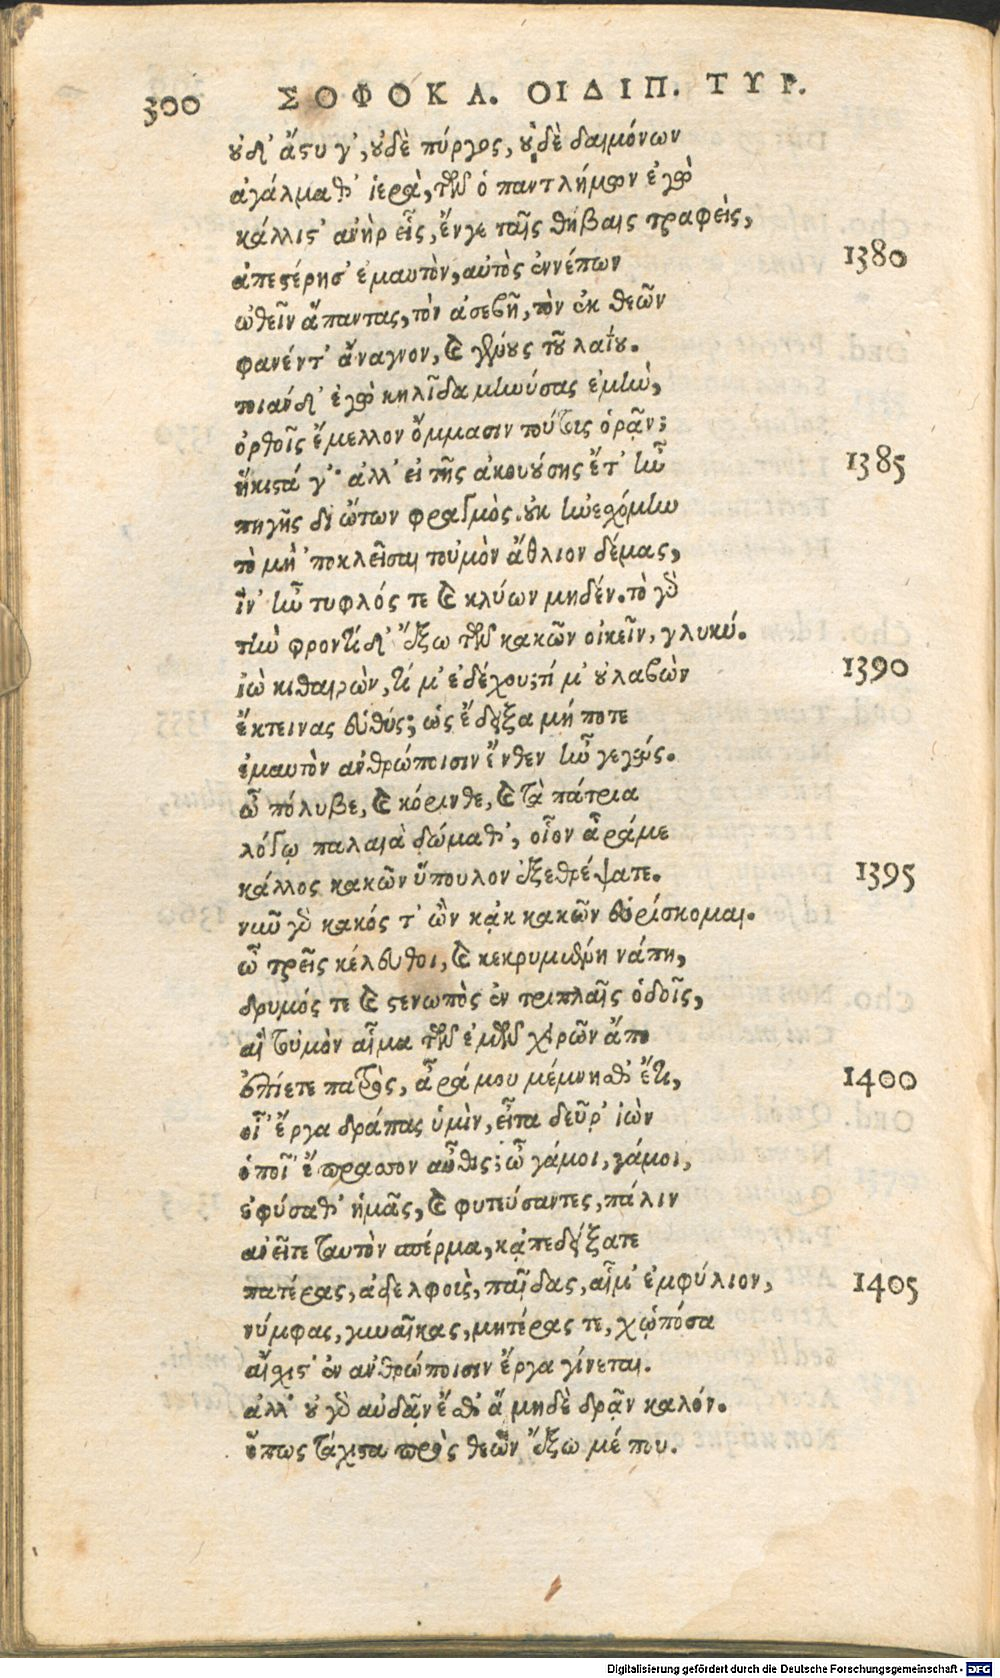 300 ΣΟΦΟΚΛ. ΟΙΔΙΠ. ΤΥΡ.
οὐδ' ἄστυ γ', οὐδὲ πύργος, οὐδὲ δαιμόνων
ἀγάλμαθ' ἱερὰ, τῶν ὁ παντλήμων ἐγὼ
κάλλιστ' ἀνὴρ εἷς, ἔνγε ταῖς θήβαις τραφεὶς,
ἀπεστέρησ' ἐμαυτὸν, αὐτὸς ἐννέπων 1380
ὠθεῖν ἅπαντας, τὸν ἀσεβῆ, τὸν ἐκ θεῶν
φανέντ' ἄναγνον, καὶ γένους τοῦ λαΐου.
τοιάνδ' ἐγὼ κηλῖδα μηνύσας ἐμὴν,
ὀρθοῖς ἔμελλον ὄμμασιν τούτοις ὁρᾷν;
ἥκιστά γ'· ἀλλ' εἰ τῆς ἀκουούσης ἔτ' ἦν 1385
πηγῆς δι ὤτων φραγμὸς. οὐκ ἠνεχόμην
τὸ μὴ 'ποκλεῖσαι τοὐμὸν ἄθλιον δέμας,
ἵν' ἦν τυφλός τε καὶ κλύων μηδέν. τὸ γὰρ
τὴν φροντίδ' ἔξω τῶν κακῶν οἰκεῖν, γλυκύ.
ἰὼ κιθαιρὼν, τί μ' ἐδέχου; τί μ' οὐ λαβὼν 1390
ἔκτεινας εὐθύς; ὡς ἔδειξα μή ποτε
ἐμαυτὸν ἀνθρώποισιν ἔνθεν ἦν γεγώς.
ὦ πόλυβε, καὶ κόρινθε, καὶ τὰ πάτρια
λόγῳ παλαιὰ δώμαθ', οἷον ἆρά με
κάλλος κακῶν ὕπουλον ἐξεθρέψατε. 1395
νῦν γὰρ κακός τ' ὢν κᾀκ κακῶν εὑρίσκομαι.
ὦ τρεῖς κέλευθοι, καὶ κεκρυμμένη νάπη,
δρυμός τε καὶ στενωπὸς ἐν τριπλαῖς ὁδοῖς,
αἳ τοὐμὸν αἷμα τῶν ἐμῶν χειρῶν ἄπο
ἐπίετε πατρὸς, ἆρά μου μέμνηθ' ἔτι, 1400
οἷ' ἔργα δράσας ὑμὶν, εἶτα δεῦρ' ἰὼν
ὁποῖ' ἔπρασσον αὖθις; ὦ γάμοι, γάμοι,
ἐφύσαθ' ἡμᾶς, καὶ φυτεύσαντες, πάλιν
ἀνεῖτε ταυτὸν σπέρμα, κᾀπεδείξατε
πατέρας, ἀδελφοὺς, παῖδας, αἷμ' ἐμφύλιον, 1405
νύμφας, γυναῖκας, μητέρας τε, χὠπόσα
αἴσχιστ' ἐν ἀνθρώποισιν ἔργα γίνεται.
ἀλλ' οὐ γὰρ αὐδᾷν ἔσθ' ἃ μηδὲ δρᾷν καλόν.
ὅπως τάχιστα πρὸς θεῶν ἔξω μέ που.
Digitalisierung gefördert durch die Deutsche Forschungsgemeinschaft - DFG